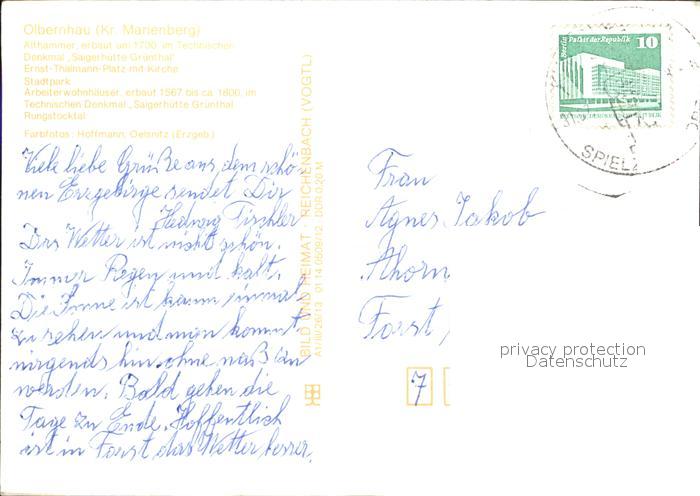 Olbernhau (Kr. Marienberg)
Althammer, erbaut um 1700, im Technischen
Denkmal „Saigerhütte Grünthal"
Ernst-Thälmann-Platz mit Kirche
Stadtpark
Arbeiterwohnhäuser, erbaut 1567 bis ca. 1600, im
Technischen Denkmal „Saigerhütte Grünthal
Rungstocktal
Farbfotos: Hoffmann, Oelsnitz (Erzgeb.)
Viele liebe Grüße aus dem schö-
nen Erzgebirge sendet Dir
Hedwig Tischler
Das Wetter ist nicht schön.
Immer Regen und kalt.
Die Sonne ist kaum einmal
zu sehen und man kommt
nirgends hin ohne naß zu
werden. Bald gehen die
Tage zu Ende. Hoffentlich
ist in Forst das Wetter besser.
BILD UND HEIMAT REICHENBACH (VOGTL)
A1/III/26/13 01 14 0609/12 DDR 0,20 M
Berlin Palast der Republik
10
SPIELZ
Frau
Agnes Jakob
Ahorn
Forst,
7
privacy protection
Datenschutz